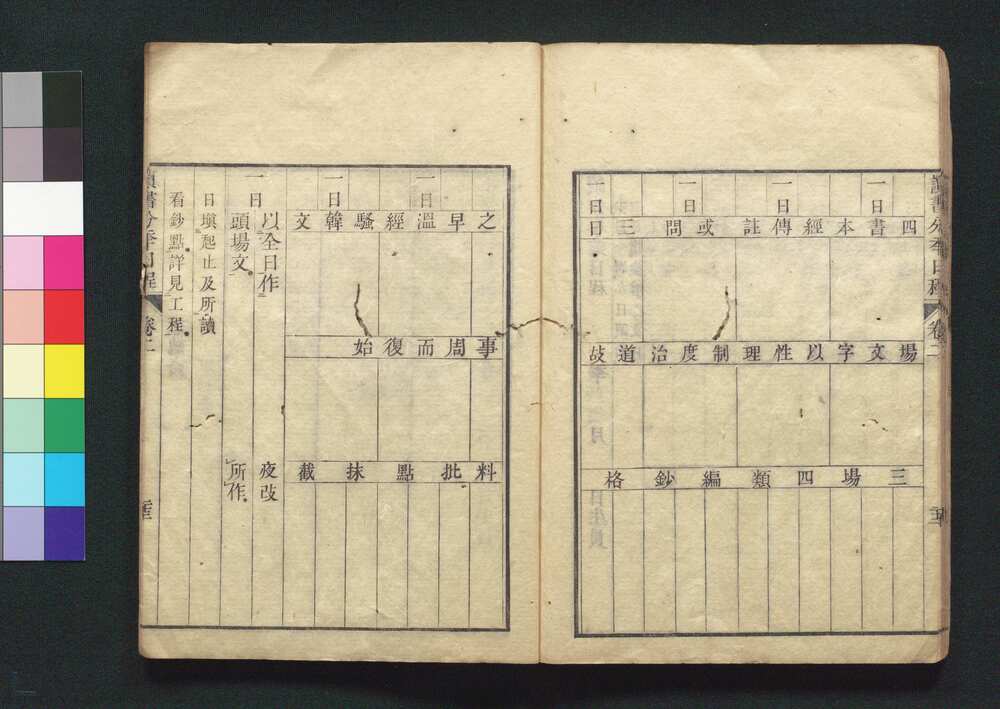 讀書分年日程
卷二
一日
一日
一日
一日
四書本經傳註或問三日
場文字以性理制度治道故
三場四類編鈔格
一日
一日
之早溫經騷韓文
事周而復始
料批點抹截
一日
以全日作 夜改
頭場文。 所作。
日塡起止及所讀
看鈔點詳見工程
讀書分年日程
卷二